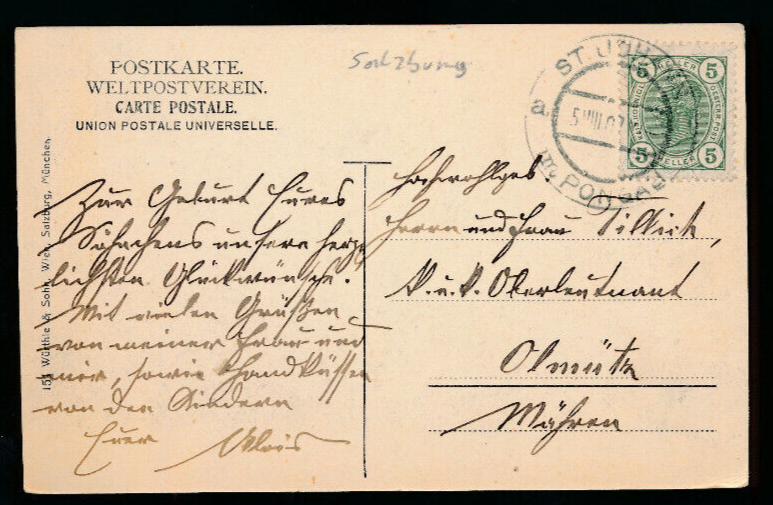 POSTKARTE.
WELTPOSTVEREIN.
CARTE POSTALE.
UNION POSTALE UNIVERSELLE.
Salzburg
ST JOH
a
5 VIII 07
im PONGAU
5 HELLER 5
5 HELLER 5
153 Würthle & Sohn, Wien, Salzburg, München.
Zur Geburt Eures
Söhnchens unsere herz-
lichsten Glückwünsche.
Mit vielen Grüßen
von meiner Frau und
mir, sowie Handküssen
von den Kindern
Euer Alois
Hochwohlgeb.
Herrn und Frau Tillich,
K. u. K. Oberleutnant
Olmütz
Mähren